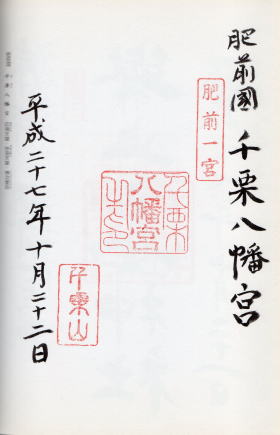 肥前國 千栗八幡宮
肥前一宮
千栗八幡宮之印
千栗山
平成二十七年十月二十二日